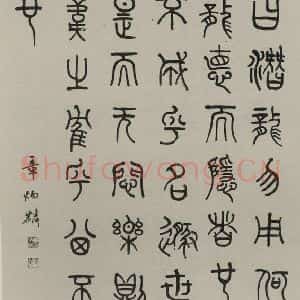 曰潛龍勿用何
龍德而隱者也
不成乎名遯世
是而无悶樂則
違之隺乎其不
也
章炳麟